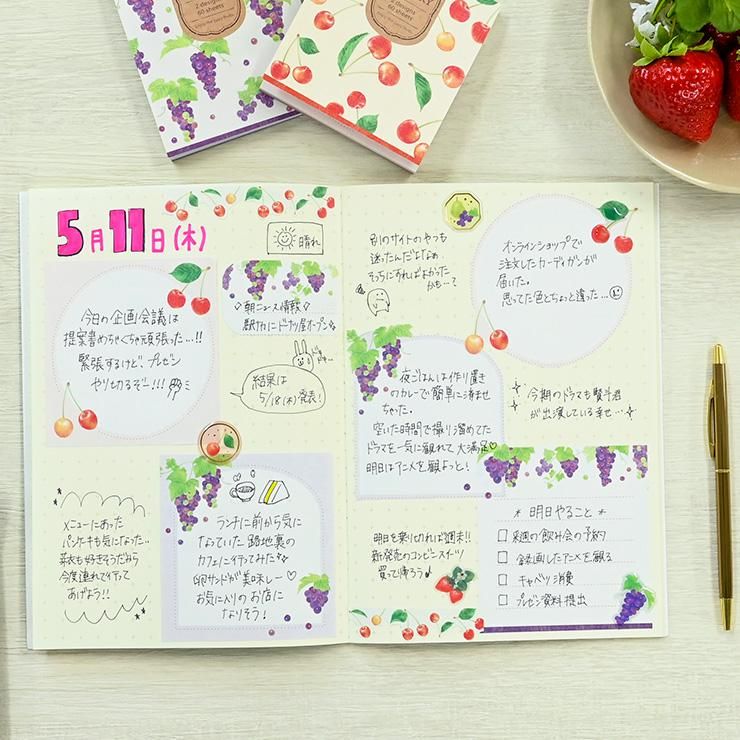 2 designs
60 sheets
2 designs
60 sheets
5月11日(木)
晴れ
今日の企画会議は
提案書めちゃくちゃ頑張った…!!
緊張するけど、プレゼン
やり切るぞー!!!
◇朝ニュース情報◇
駅ナカにドーナツ屋オープン
結果は
5/18(木)発表!
メニューにあった
パンケーキも気になった…
も好きそうだから
今度連れて行って
あげよう!!
ランチに前から気に
なっていた路地裏の
カフェに行ってみた
卵サンドが美味しー♡
お気に入りのお店に
なりそう!
別のサイトのやつも
迷ったんだよなぁ
そっちにすればよかった
かも…?
オンラインショップで
注文したカーディガンが
届いた。
思ってた色とちょっと違った…
夜ごはんは作り置き
のカレーで簡単に済ませ
ちゃった。
空いた時間で撮り溜めてた
ドラマを一気に観れて大満足♡
明日はアニメを観よっと!
今期のドラマも賢斗君
が出演している幸せ…
明日を乗り切れば週末!!
新発売のコンビニスイーツ
買って帰ろう♪
* 明日やること *
□ 来週の飲み会の予約
□ 録画したアニメを観る
□ キャベツ消費
□ プレゼン資料提出